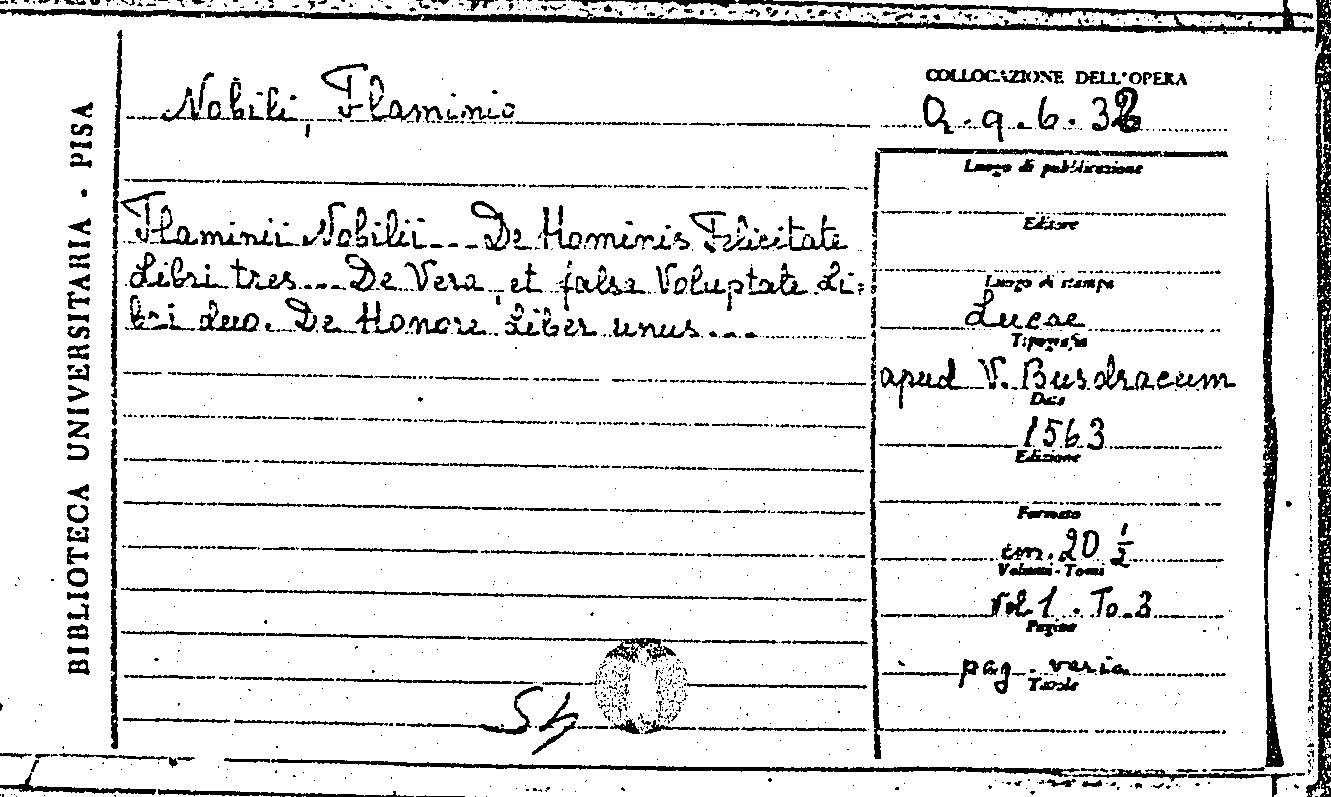 BIBLIOTECA UNIVERSITARIA - PISA
Nobili, Flaminio
Flaminii Nobilii... De Hominis Felicitate
Libri tres... De Vera, et falsa Voluptate Li=
bri duo. De Honore Liber unus...
COLLOCAZIONE DELL'OPERA
Q. q. 6. 32
Luogo di pubblicazione
Editore
Luogo di stampa
Lucae
Tipografia
apud V. Busdracum
Data
1563
Edizione
Formato
cm. 20 ½
Volumi - Tomi
Vol. 1. To. 3
Pagine
pag. varia
Tavole